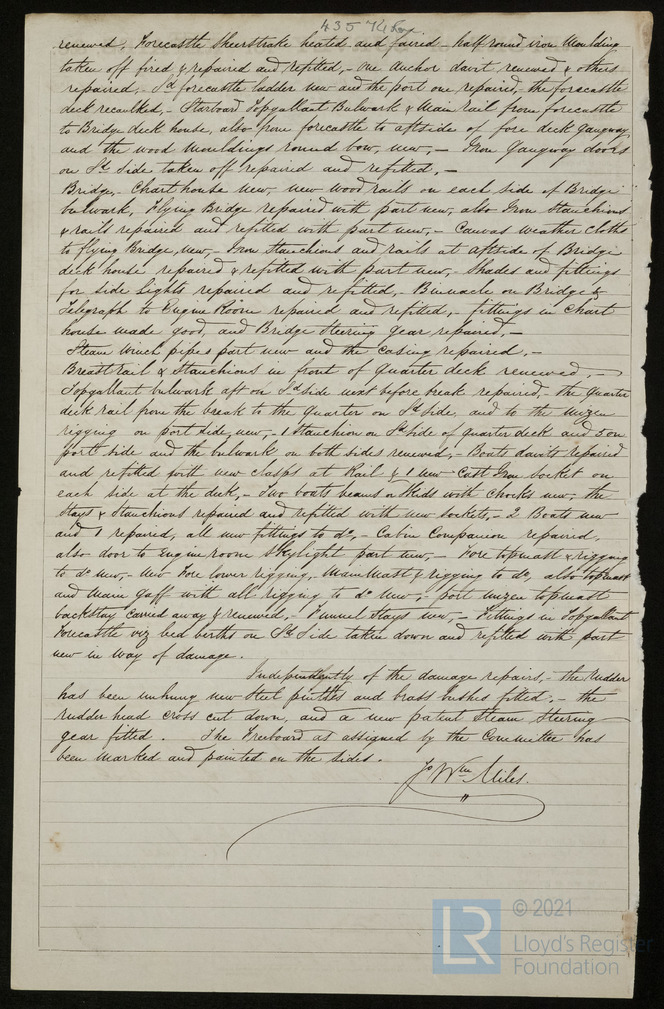 435
renewed, Forecastle Sheerstrake heated and faired - half round iron Moulding
taken off fired & repaired and refitted, - One Anchor davit renewed & others
repaired, - Sd forecastle ladder new and the port one repaired, the forecastle
deck recaulked, - Starboard Topgallant Bulwark & Main rail from forecastle
to Bridge deck house, also from forecastle to aftside of fore deck gangway,
and the wood mouldings round bow, new, - Iron Gangway doors
on Sd side taken off repaired and refitted, -
Bridge, Chart house new, new wood rails on each side of Bridge
bulwark, Flying Bridge repaired with part new, also Iron Stanchions
& rails repaired and refitted with part new, - Canvas weather Cloths
to flying Bridge, new, - Iron Stanchions and rails at aftside of Bridge
deck house repaired & refitted with part new, - Shades and fittings
for side Lights repaired and refitted, - Binnacle on Bridge &
Telegraph to Engine Room repaired and refitted, - fittings in Chart
house made good, and Bridge Steering gear repaired, -
Steam Winch pipes part new and the Casing repaired, -
Breastrail & Stanchions in front of quarter deck renewed, -
Topgallant bulwark aft on Sd side next before break repaired, - the quarter
deck rail from the break to the quarter on Sd side, and to the mizen
rigging on port side, new, - 1 Stanchion on Sd Side of quarter deck and 5 on
port side and the bulwark on both sides renewed, - Boats davits repaired
and refitted with new clasps at Rail & 1 new Cast Iron Socket on
each side at the deck, - Two boats beams or Skids with Chocks new, the
Stays & Stanchions repaired and refitted with new sockets, - 2 Boats new
and 1 repaired, all new fittings to do, - Cabin Companion repaired,
also door to Engine room Skylight part new, - Fore topmast & rigging
to do new, - New Fore lower rigging, Main Mast & rigging to do, also topmast
and Main gaff with all rigging to do New, port mizen topmast
backstay Carried away & renewed, - Funnel Stays new, - Fittings in Topgallant
Forecastle viz bed berths on Sd Side taken down and refitted with part
new in way of damage.
Independently of the damage repairs, - the Rudder
has been unhung new Steel pintles and brass bushes fitted, - the
rudder head cross cut down, and a new patent Steam Steering
gear fitted. The Freeboard as assigned by the Committee has
been Marked and painted on the sides.
Jo Wm Miles.
LR
© 2021
Lloyd's Register
Foundation